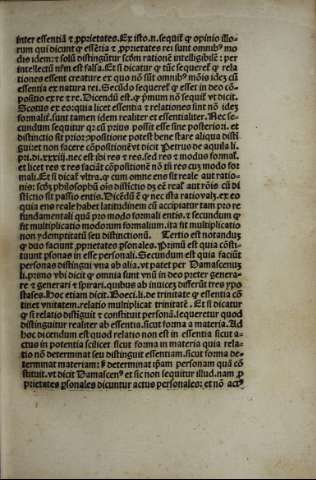 inter essentiā ⁊ ꝓprietates. Ex isto .n. sequit᷑ ꝙ opinio illo-
rum qui dicunt ꝙ essētia ⁊ ꝓprietates rei sunt omnibꝰ mo-
dis idem: ⁊ solū distingūtur scd̄m rationē intelligibilē: per
intellectū nr̄m est falsa. Et si dicatur ꝙ tūc sequeret᷑ ꝙ rela-
tiones essent creature ex quo nō sūt omnibꝰ mōis idez cū
essentia ex natura rei. Secūdo sequeret᷑ ꝙ esset in deo cō-
positio ex re ⁊ re. Dicendū est. ꝙ pͥmum nō sequit᷑ vt dicit.
Scotus ex eo: quia licet essentia ⁊ relationes sint nō idez
formalit᷑. sunt tamen idem realiter et essentialiter. Nec se-
cundum sequitur
distinctio sit prior
non facere cōpositionē vt dicit Petrus de aquila li.
pri. di. xxxiij. nec est ibi res ⁊ res. sed res ⁊ modus formal.
et licet res ⁊ res faciāt cōpositionē nō tn̄ res cuȝ modo for
mali. Et si dicat᷑ vltra. ꝙ cum omne ens sit reale aut ratio-
nis:
stictio sit passio entis.
quia ens reale habet latitudinem cū accipiatur tam pro re
fundamentali quā pro modo formali entis. ⁊ secundum ꝙ
fit multiplicatio modorum formalium. ita fit multiplicatio
non ydemptitatū seu distinctionū. Tertio est notandum
ꝙ duo faciunt ꝓprietates ꝑsonales. Primū est quia cōsti-
tuunt ꝑsonas in esse personali. Secundum est quia faciūt
personas distingui vna ab alia. vt patet per Damascenuȝ
li. primo vbi dicit ꝙ omnia sunt vnū in deo preter genera-
re ⁊ generari ⁊ spirari. quibus ab inuiceȝ differūt tres ypo
stases. Hoc etiam dicit. Boeci. li. de trinitate ꝙ essentia cō
tinet vnitatem. relatio multiplicat trinitatē. Et si dicatur
ꝙ si relatio distīguit ⁊ constituit personā. sequeretur quod
distinguitur realiter ab essentia. sicut forma a materia. Ad
hoc dicendum est quod relatio non est in essentia sicut a-
ctus in potentia scilicet sicut forma in materia quia rela-
tio nō determinat seu distinguit essentiam. sicut forma de-
terminat materiam: sꝫ determinat ip̄am personam quā cō
stituit. vt dicit Damascenꝰ et sic non sequitur illud. nam ꝓ
prietates ꝑsonales dicuntur actus personales: et nō actꝰ